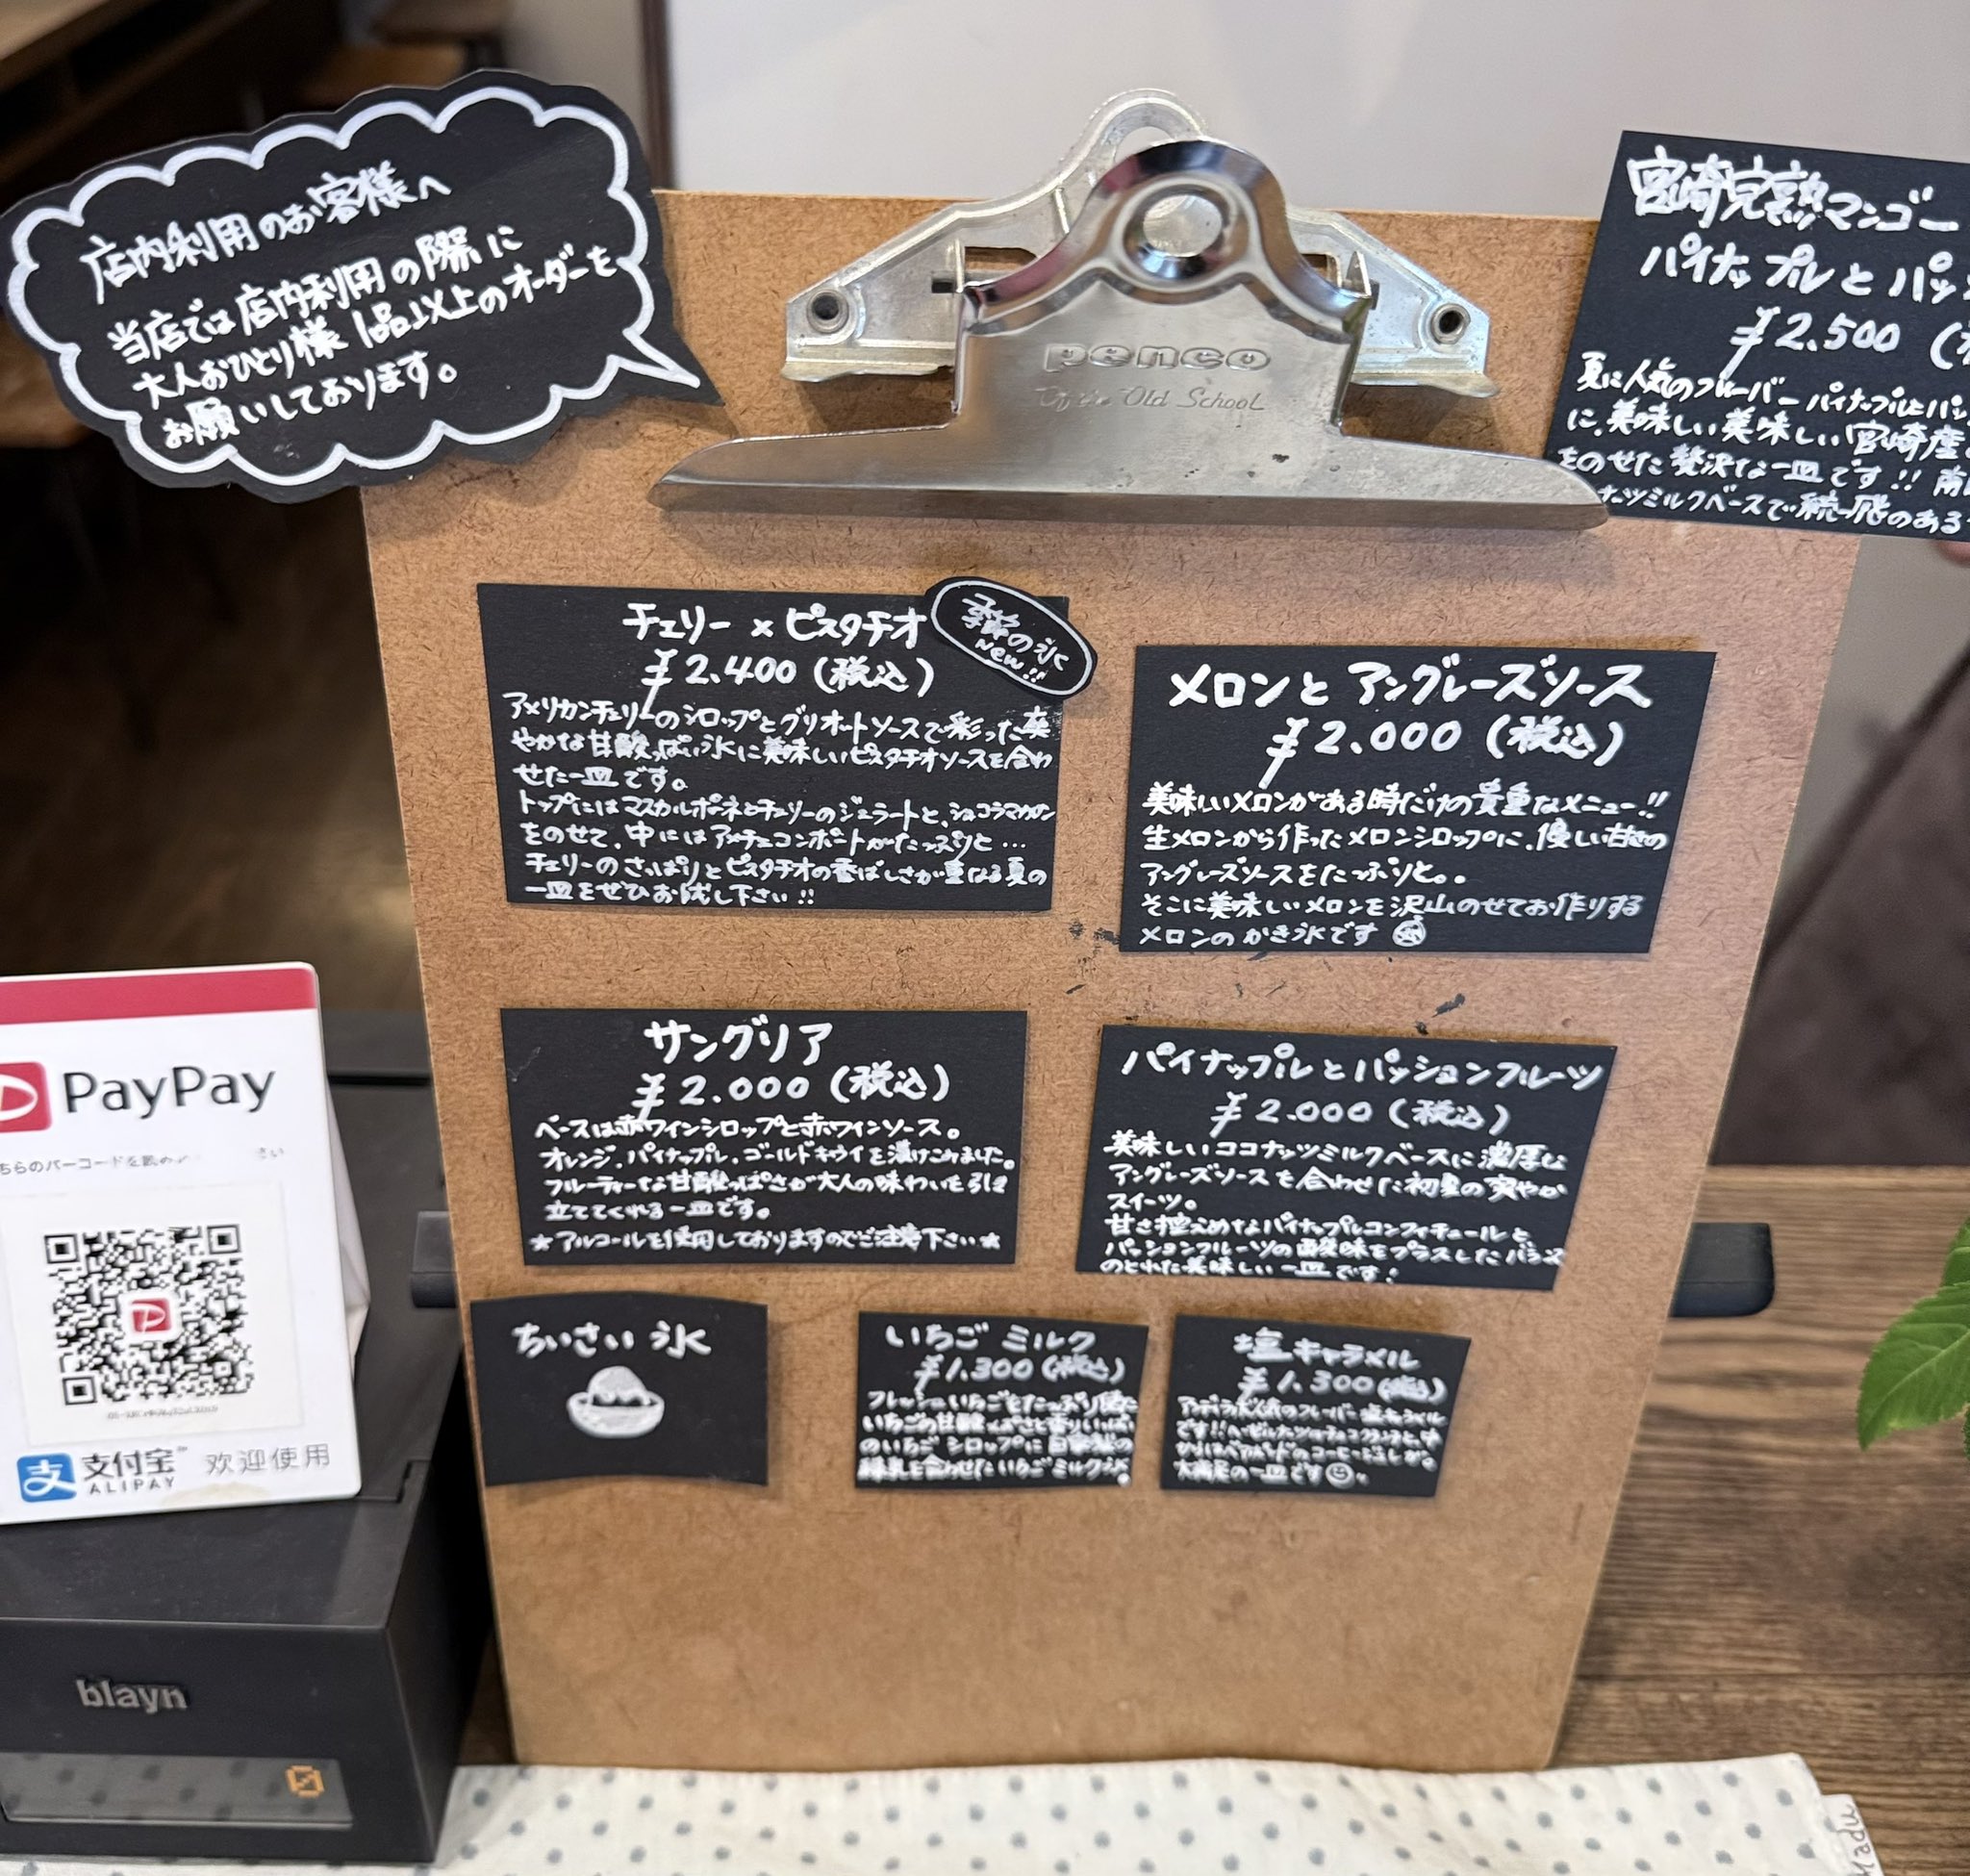 店内利用のお客様へ
当店では店内利用の際に
大人おひとり様 1品以上のオーダーを
お願いしております。
penco
Old School
宮崎完熟マンゴー
パイナップルとパッ
¥2.500
夏に人気のフレーバー パイナップルとパッ
に、美味しい美味しい宮崎産
をのせた贅沢な一皿です!! 南
ナッツミルクベースで統一感のある
チェリー×ピスタチオ
¥2.400(税込)
季節の氷
New!!
アメリカンチェリーのシロップとグリオットソースで彩った爽
やかな甘酸っぱい氷に美味しいピスタチオソースを合わ
せた一皿です。
トップにはマスカルポーネとチェリーのジェラートと、ショコラマカロン
をのせて、中にはアメチェコンポートがたっぷりと…
チェリーのさっぱりとピスタチオの香ばしさが重なる夏の
一皿をぜひお試し下さい!!
メロンと アングレーズソース
¥2.000(税込)
美味しいメロンがある時だけの貴重なメニュー!!
生メロンから作ったメロンシロップに、優しい甘さの
アングレーズソースをたっぷりと。.
そこに美味しいメロンを沢山のせてお作りする
メロンのかき氷です
サングリア
¥2.000(税込)
ベースは赤ワインシロップと赤ワインソース。
オレンジ、パイナップル、ゴールドキウイを漬けこみました。
フルーティーな甘酸っぱさが大人の味わいを引き
立ててくれる一皿です。
★アルコールを使用しておりますのでご注意下さい★
パイナップルとパッションフルーツ
¥2.000(税込)
美味しいココナッツミルクベースに濃厚な
アングレーズソースを合わせた初夏の爽やか
スイーツ。
甘さ控えめなパイナップルコンフィチュールと、
パッションフルーツの酸味をプラスしたバランス
のとれた美味しい一皿です!
ちいさい氷
いちごミルク
¥1.300(税込)
フレッシュいちごをたっぷり使た
いちごの甘酸っぱさと香りいっぱい
のいちごシロップに自家製の
練乳を合わせたいちごミルク氷。
塩キャラメル
¥1.300(税込)
大満足の一皿です
PayPay
ちらのバーコードを読み
さい
支付宝
ALIPAY
欢迎使用
blayn
0